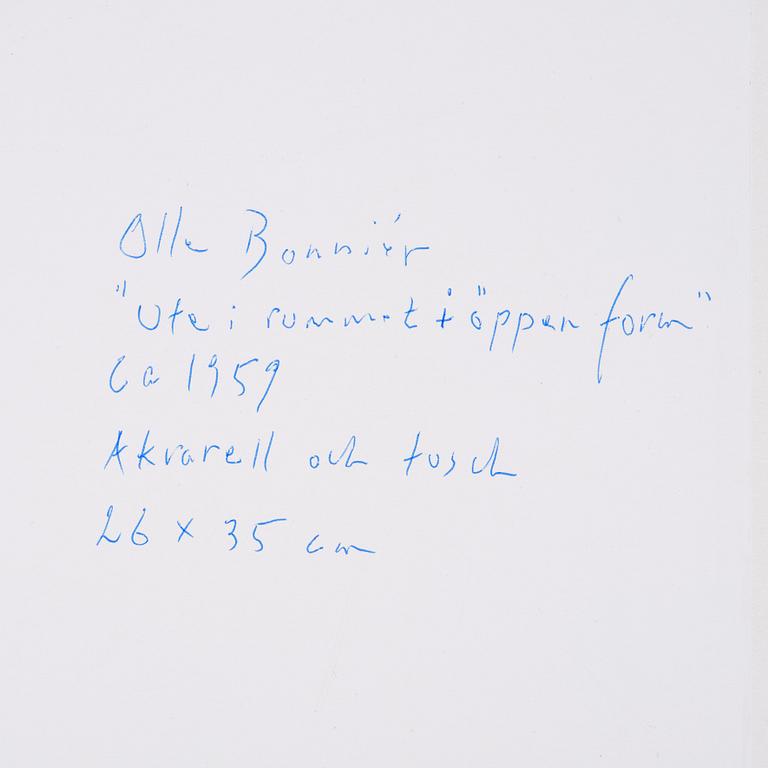 Olle Bonniér
"Ute i rummet i öppen form"
Ca 1959
Akvarell och tusch
26 x 35 cm